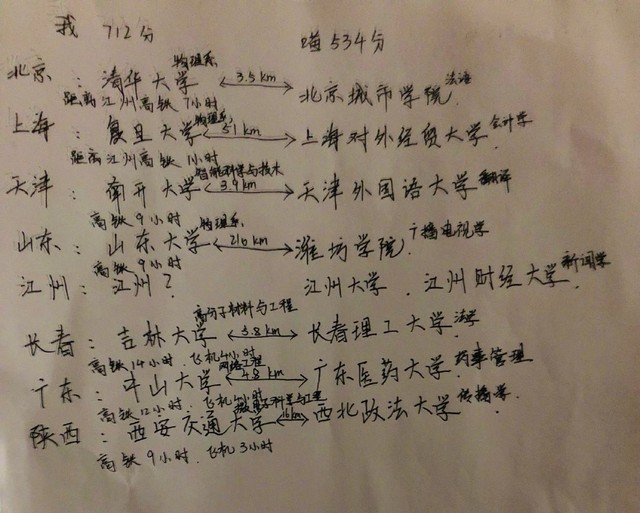 我 712分 喵 534分
北京：清华大学 物理系 3.5km 北京城市学院 法学
距离江州高铁 7小时
上海：复旦大学 物理系 51km 上海对外经贸大学 会计学
距离江州高铁 1小时
天津：南开大学 智能科学与技术 3.9km 天津外国语大学 翻译
高铁 9小时
山东：山东大学 物理系 216km 潍坊学院 广播电视学
高铁 9小时
江州：江州？ 江州大学．江州财经大学 新闻学
长春：吉林大学 高分子材料与工程 3.8km 长春理工大学 法学
高铁14小时．飞机4小时
广东：中山大学 网络工程 48km 广东医药大学 药事管理
高铁12小时．飞机 小时
陕西：西安交通大学 科学与工程 16km 西北政法大学 传播学
高铁 9小时．飞机 3小时